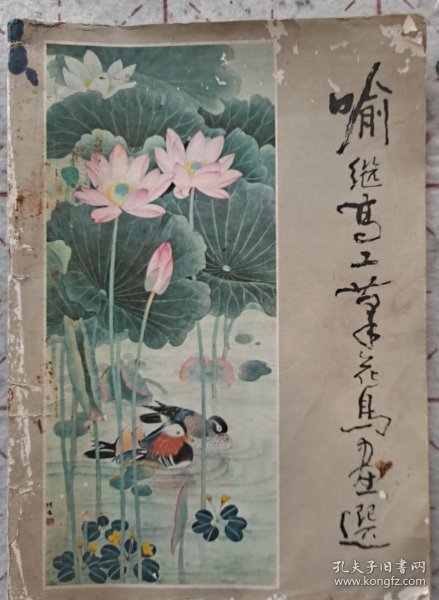 喻继高工笔花鸟画選
继高
孔夫子旧书网
www.kongfz.com